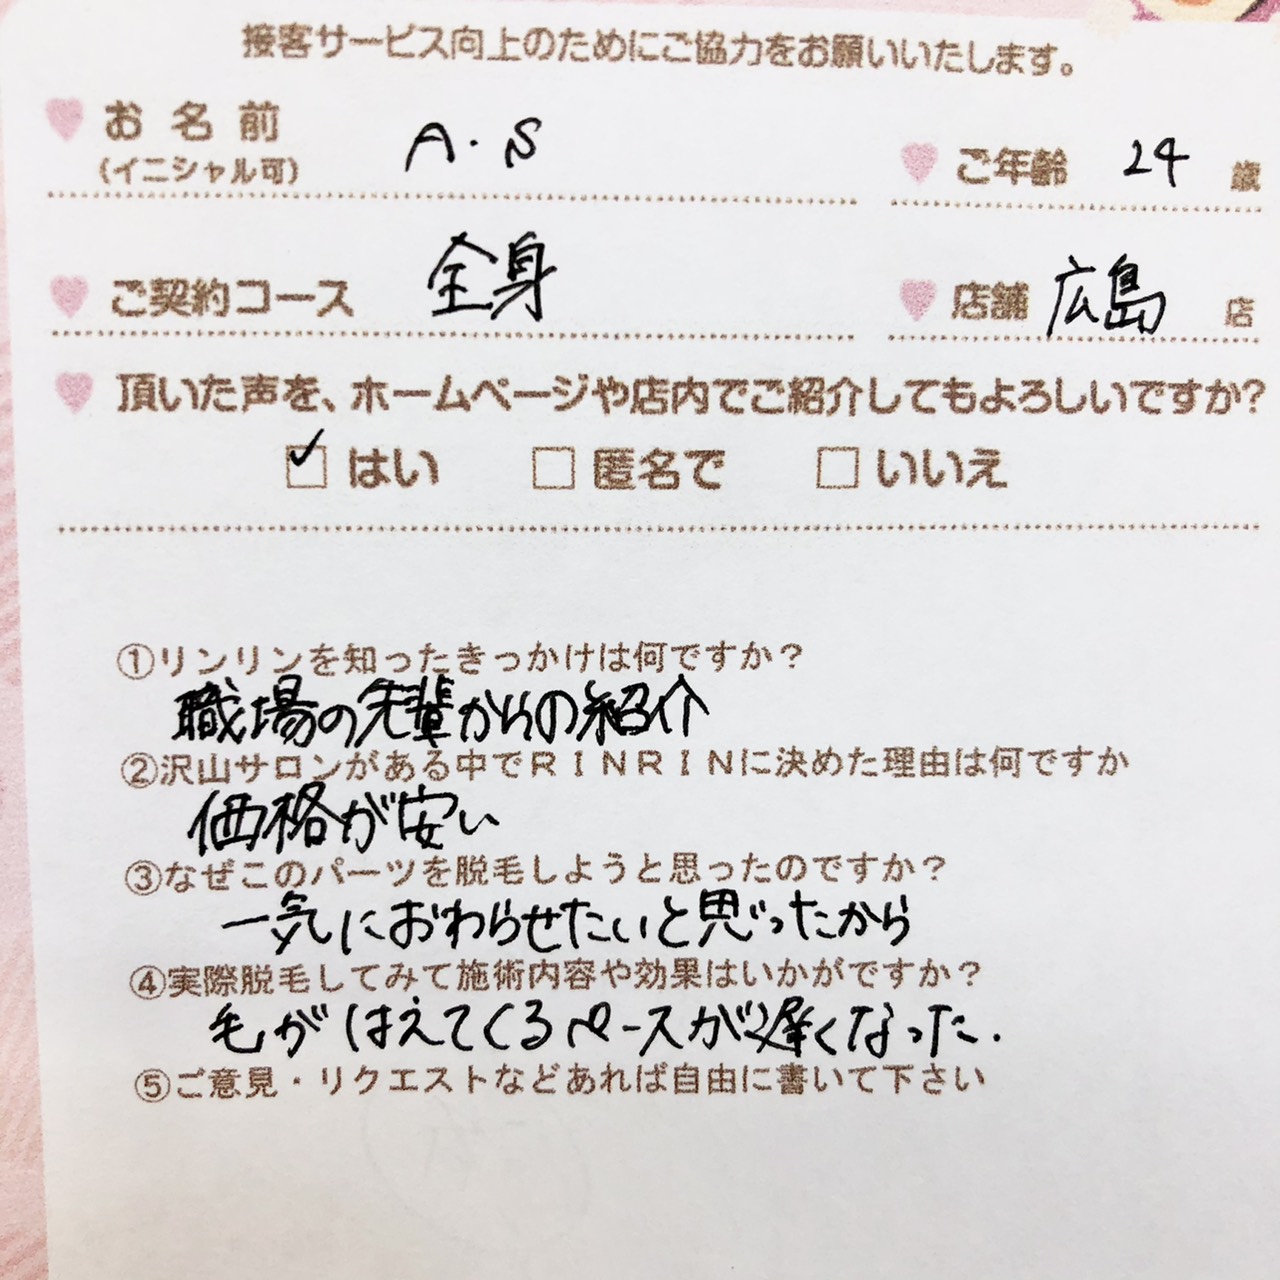 接客サービス向上のためにご協力をお願いいたします。
お名前 A・S ご年齢 24 歳
(イニシャル可)
ご契約コース 全身 店舗 広島 店
頂いた声を、ホームページや店内でご紹介してもよろしいですか?
✓はい □匿名で □いいえ
①リンリンを知ったきっかけは何ですか?
職場の先輩からの紹介
②沢山サロンがある中でRINRINに決めた理由は何ですか
価格が安い
③なぜこのパーツを脱毛しようと思ったのですか?
一気におわらせたいと思ったから
④実際脱毛してみて施術内容や効果はいかがですか?
毛がはえてくるペースが遅くなった.
⑤ご意見・リクエストなどあれば自由に書いて下さい